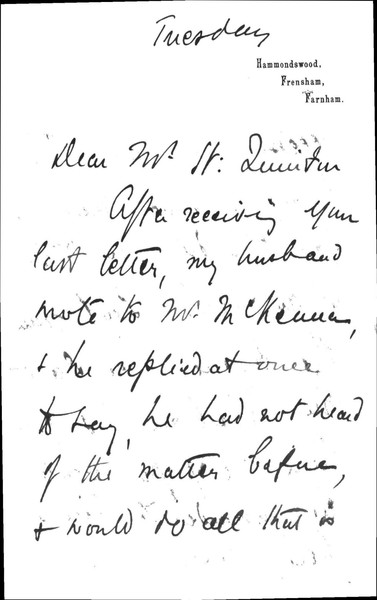 Tuesday
Hammondswood,
Frensham,
Farnham.
Dear Mr. St: Quintin
After receiving your
last letter, my husband
wrote to Mr. McKenna,
& he replied at once
to say, he had not heard
of the matter before,
& would do all that is